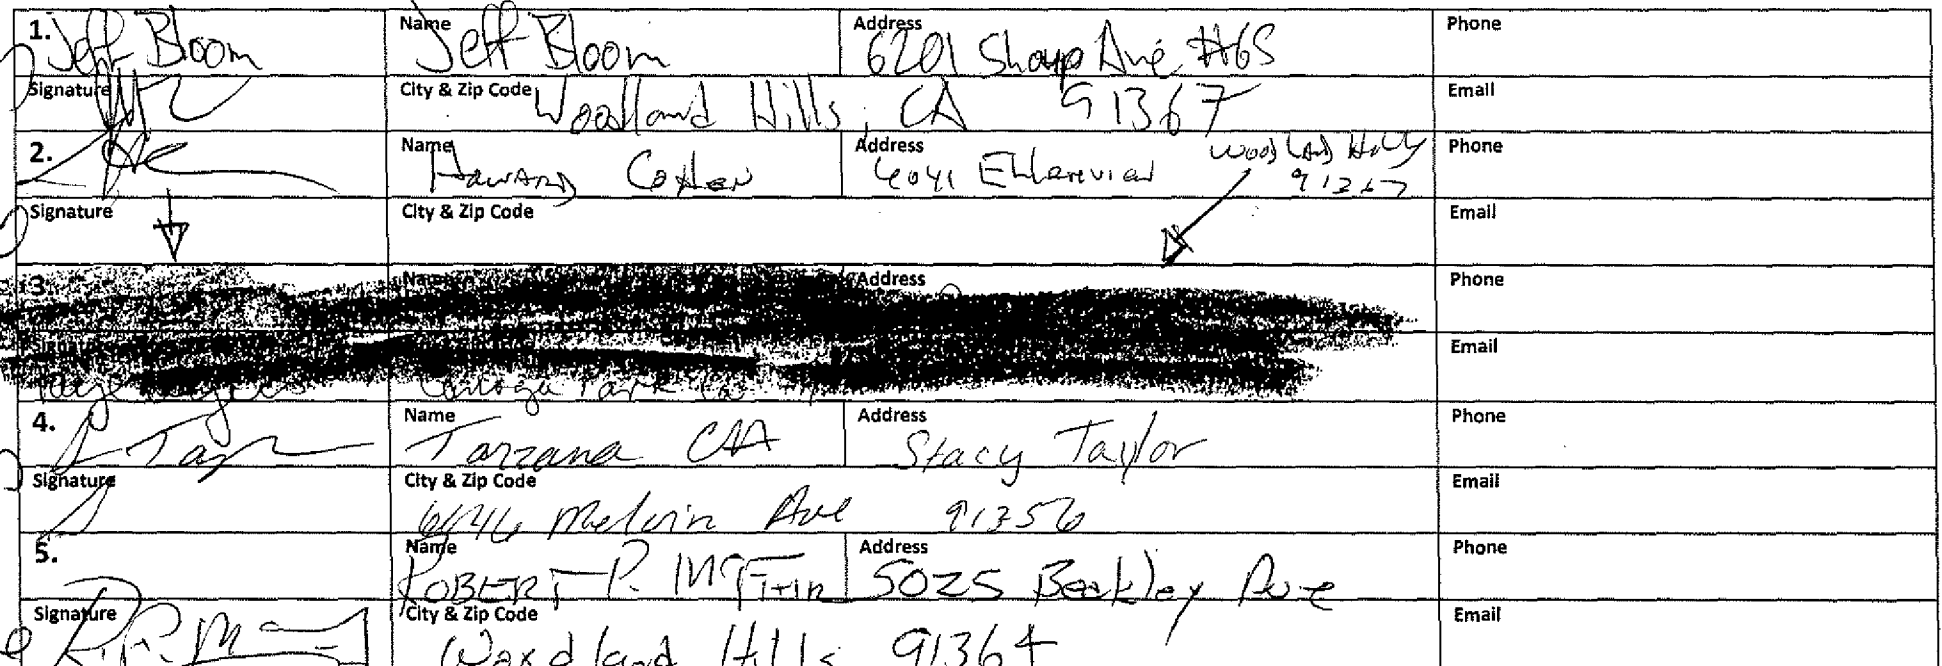 1. Jeff Bloom Name Jeff Bloom Address 6201 Shoup Ave #65 Phone
Signature City & Zip Code Woodland Hills, CA 91367 Email
2. Name Howard Address Woodland Hills 91367 Phone
Signature City & Zip Code Email
3. Name Address Phone
Email
Canoga Park Ca
4. S Taylor Name Tarzana CA Address Stacy Taylor Phone
Signature City & Zip Code Melvin Ave 91356 Email
5. Name Robert P. Address 5025 Ave Phone
Signature City & Zip Code Woodland Hills 91364 Email